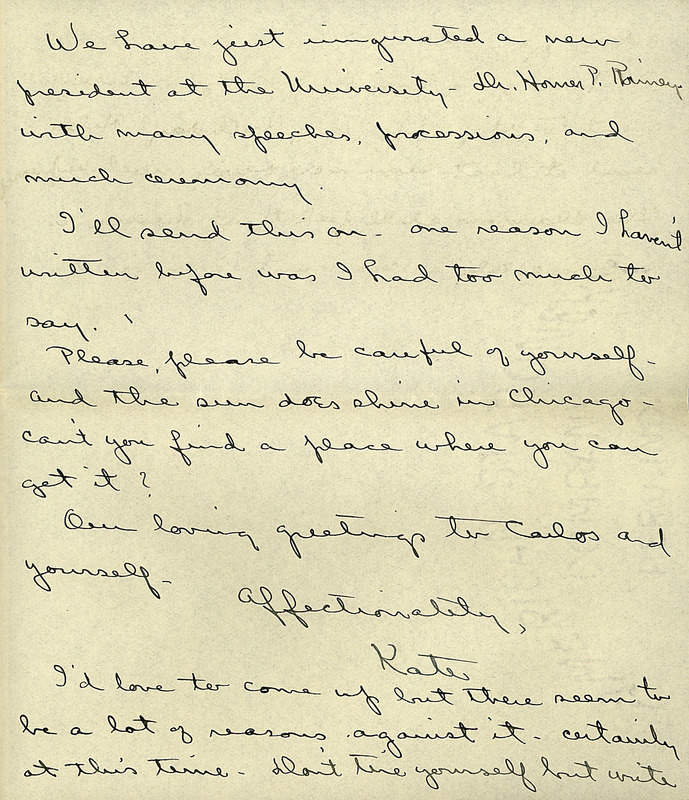 We have just inugurated a new
president at the University - Dr. Homer P. Rainey -
with many speeches, processions, and
much ceremony.
I'll send this on - one reason I haven't
written before was I had too much to
say.
Please, please be careful of yourself -
and the sun does shine in Chicago -
can't you find a place where you can
get it?
Our loving greetings to Carlos and
yourself -
Affectionately,
Kate
I'd love to come up but there seem to
be a lot of reasons against it - certainly
at this time - Don't tire yourself but write